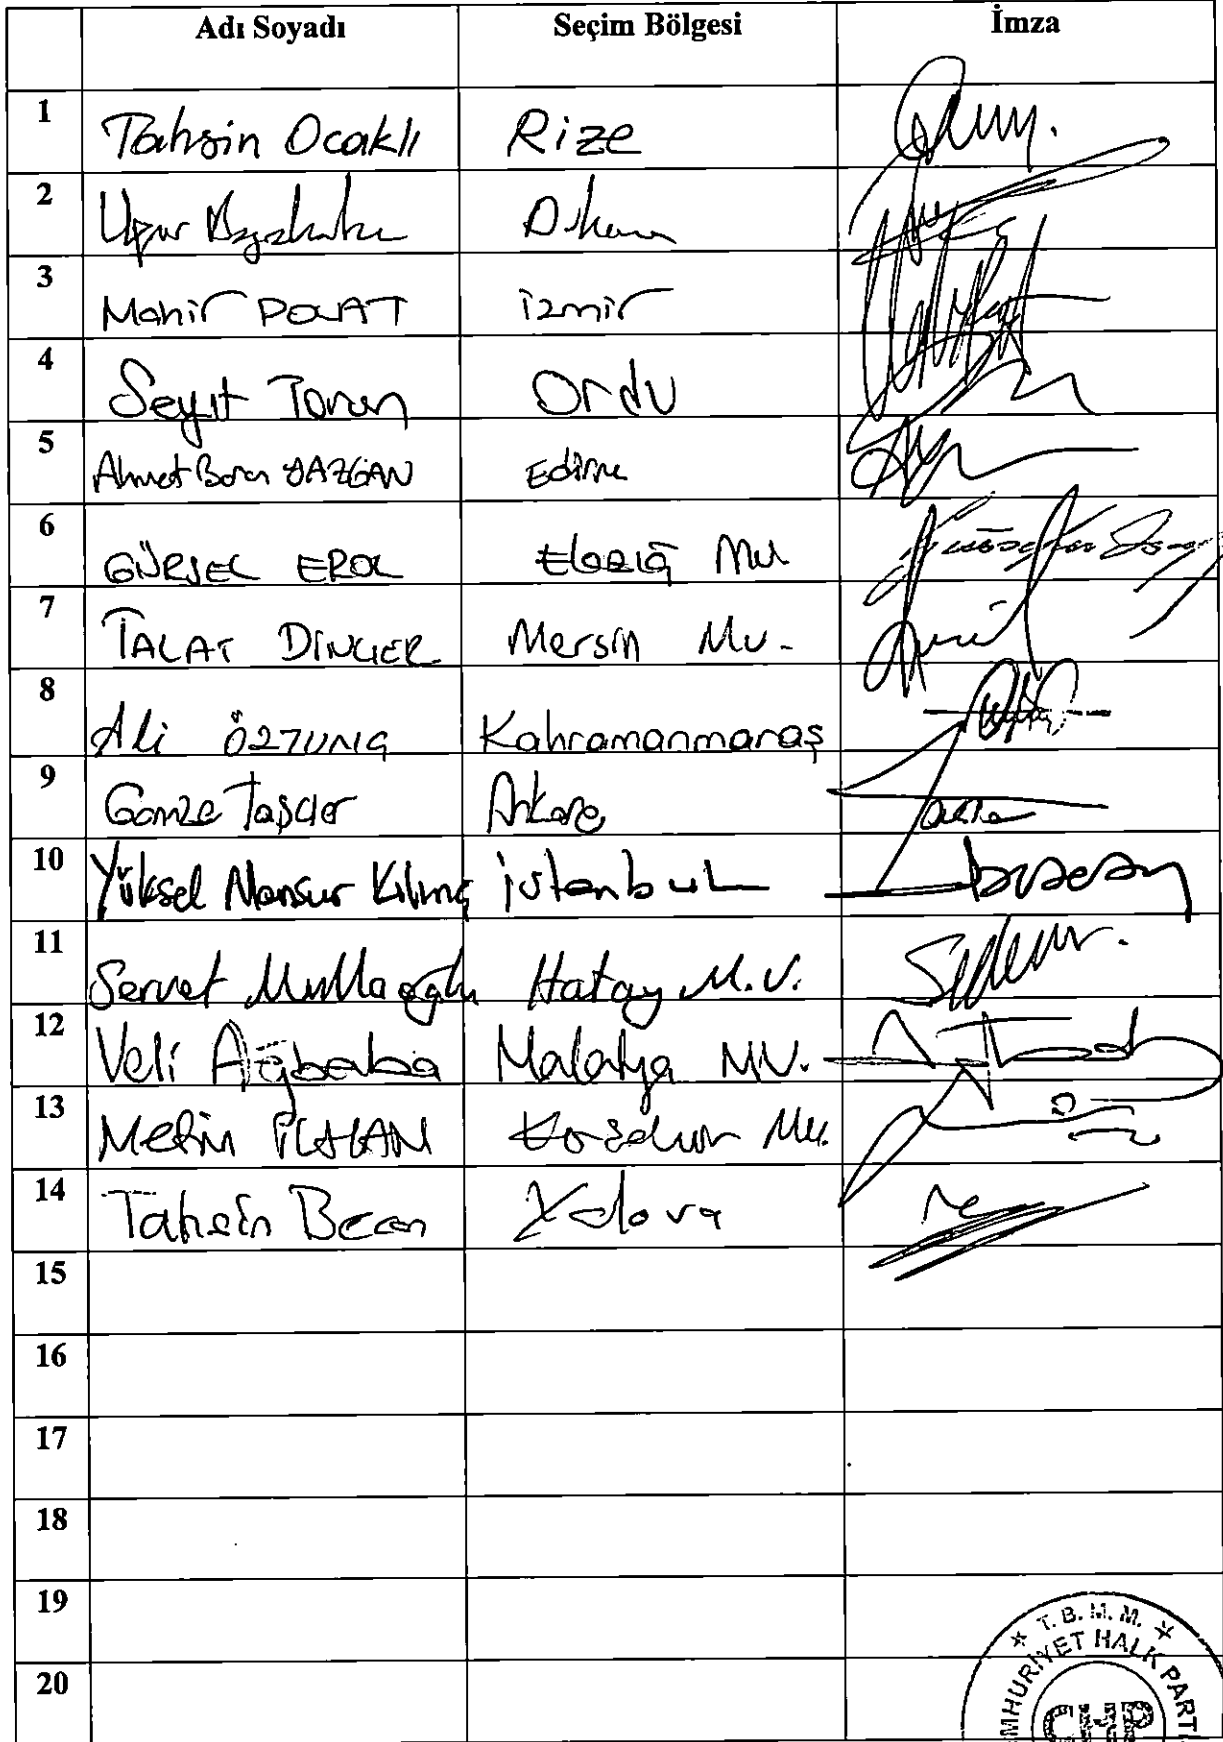 Adı Soyadı Seçim Bölgesi İmza
1 Tahsin Ocaklı Rize
2 Uğur
3 Mahir POLAT izmir
4 Seyit Torun Ordu
5 Ahmet Baran YAZGAN Edirne
6 GÜRSEL EROL ELAZIĞ MV.
7 TALAT DİNÇER Mersin Mv.
8 Ali ÖZTUNÇ Kahramanmaraş
9 Gamze Taşcıer Ankara
10 Yüksel Mansur Kılınç istanbul
11 Servet Mullaoğlu Hatay M.V.
12 Veli Ağbaba Malatya MV.
13 Metin İLHAN Mv.
14 Tahsin Becan Yalova
15
16
17
18
19
20
T.B.M.M.
MHURİYET HALK PARTİ
CHP